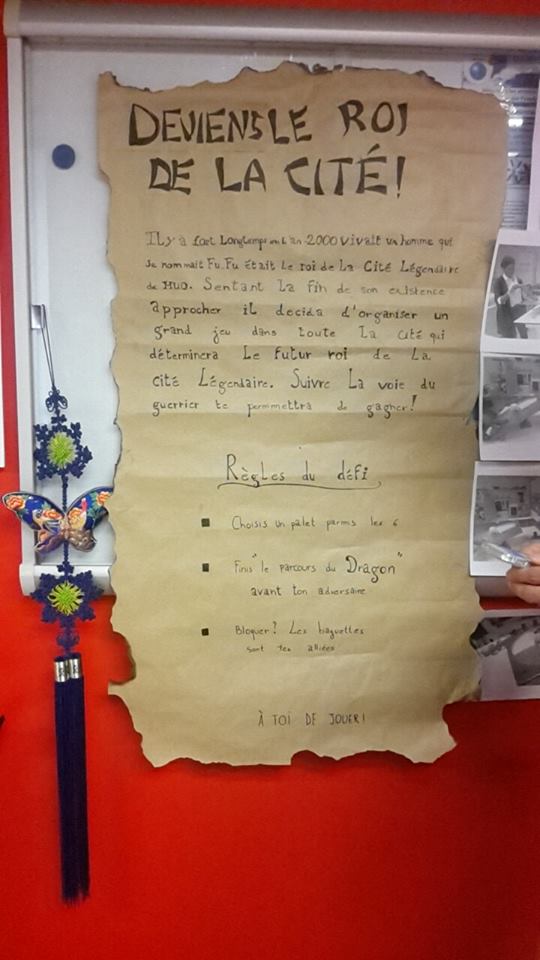 DEVIENS LE ROI
DE LA CITÉ!
Il y a fort Longtemps en L'an 2000 vivait un homme qui
se nommait Fu. Fu était Le roi de La Cité Légendaire
de HUO. Sentant La fin de son existence
approcher il decida d'organiser un
grand jeu dans toute la cité qui
déterminera Le futur roi de La
cité Légendaire. Suivre La voie du
guerrier te permmettra de gagner!
Règles du défi
Choisis un palet parmis les 6
Finis "le parcours du Dragon"
avant ton adversaire
Bloquer? Les baguettes
sont tes alliées
À TOI DE JOUER!